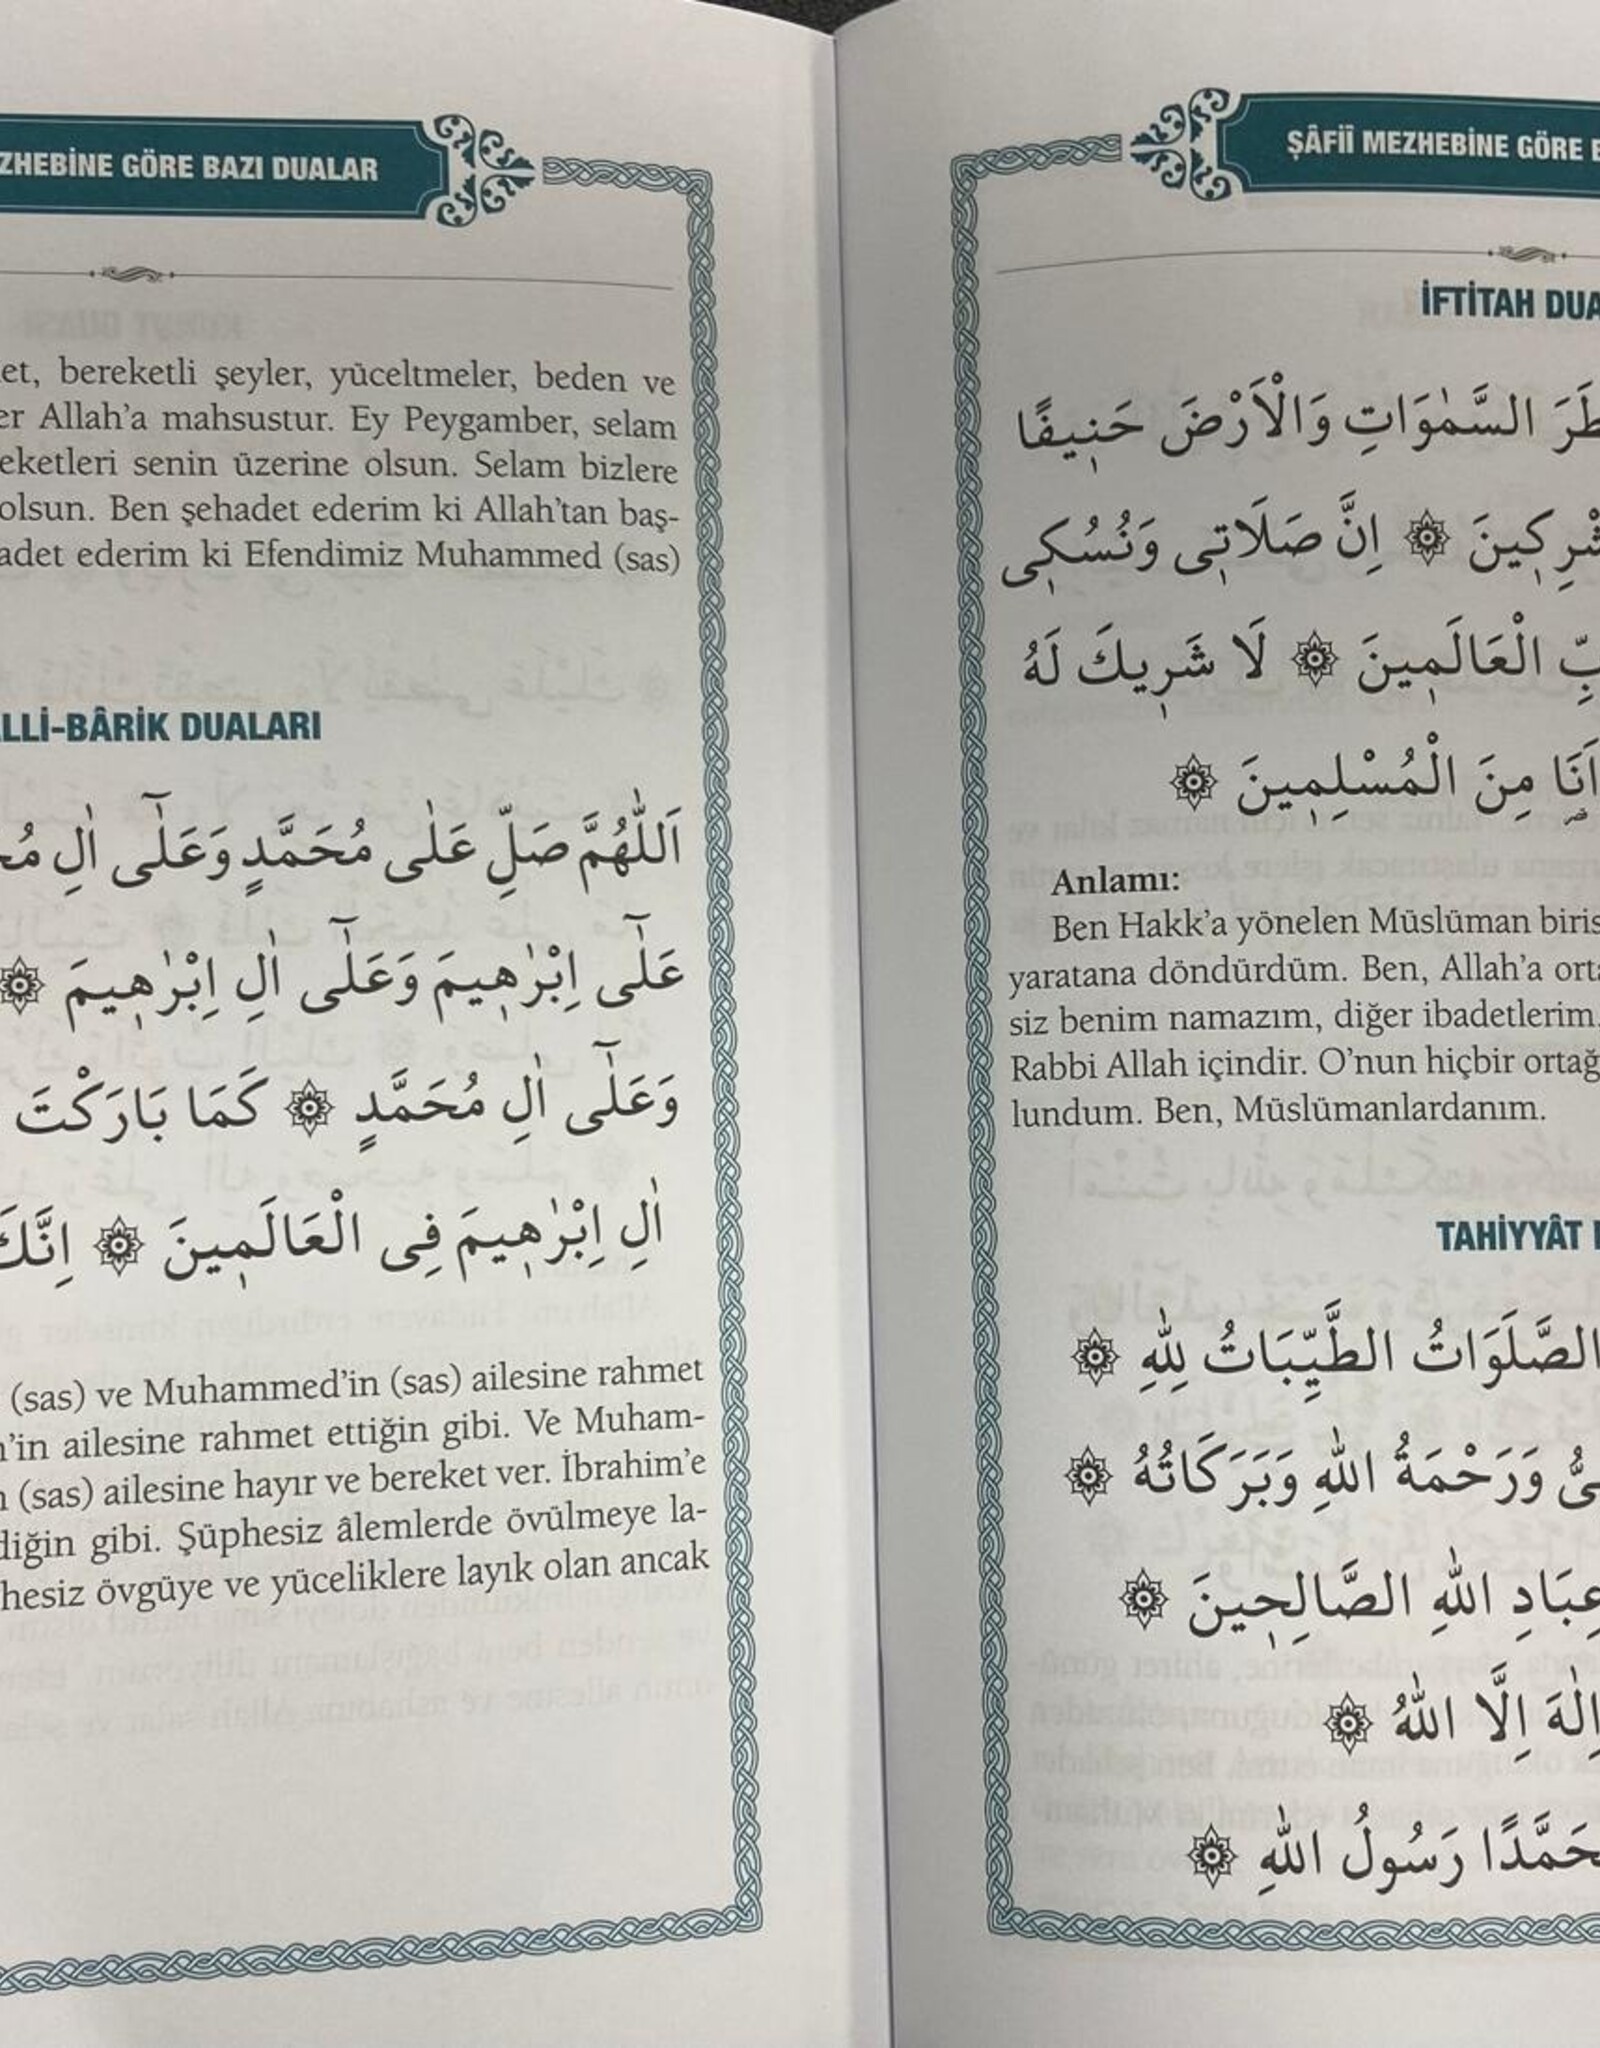 GÖRE BAZI DUALAR
bereketli şeyler, yüceltmeler, beden ve
Allah’a mahsustur. Ey Peygamber, selam
senin üzerine olsun. Selam bizlere
olsun. Ben şehadet ederim ki Allah’tan baş-
ederim ki Efendimiz Muhammed (sas)
BÂRİK DUALARI
اَللّٰهُمَّ صَلِّ عَلٰى مُحَمَّدٍ وَعَلٰٓى اٰلِ
عَلٰٓى اِبْرٰه۪يمَ وَعَلٰٓى اٰلِ اِبْرٰه۪يمَ
وَعَلٰٓى اٰلِ مُحَمَّدٍ ۞ كَمَا بَارَكْتَ
اٰلِ اِبْرٰه۪يمَ فِى الْعَالَم۪ينَ ۞ اِنَّكَ
(sas) ve Muhammed’in (sas) ailesine rahmet
ailesine rahmet ettiğin gibi. Ve Muham-
(sas) ailesine hayır ve bereket ver. İbrahim’e
gibi. Şüphesiz âlemlerde övülmeye la-
övgüye ve yüceliklere layık olan ancak
ŞÂFİÎ MEZHEBİNE GÖRE
İFTİTAH
السَّمٰوَاتِ وَالْاَرْضَ حَن۪يفًا
۞ اِنَّ صَلَات۪ى وَنُسُك۪ى
الْعَالَم۪ينَ ۞ لَا شَر۪يكَ لَهُ
اَنَا۬ مِنَ الْمُسْلِم۪ينَ ۞
Anlamı:
Ben Hakk’a yönelen Müslüman
yaratana döndürdüm. Ben, Allah’a
siz benim namazım, diğer ibadetlerim,
Rabbi Allah içindir. O’nun hiçbir
lundum. Ben, Müslümanlardanım.
TAHİYYÂT
الصَّلَوَاتُ الطَّيِّبَاتُ لِلّٰهِ ۞
وَرَحْمَةُ اللّٰهِ وَبَرَكَاتُهُ ۞
عِبَادِ اللّٰهِ الصَّالِح۪ينَ ۞
اِلٰهَ اِلَّا اللّٰهُ ۞
رَسُولُ اللّٰهِ ۞